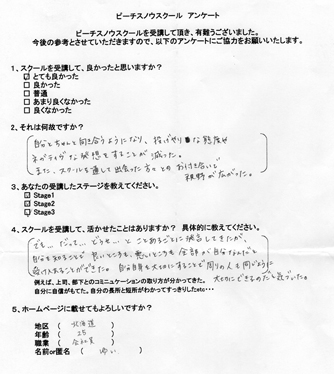 ピーチスノウスクール アンケート
ピーチスノウスクールを受講して頂き、有難うございました。
今後の参考とさせていただきますので、以下のアンケートにご協力をお願いいたします。
1、スクールを受講して、良かったと思いますか？
☑ とても良かった
□ 良かった
□ 普通
□ あまり良くなかった
□ 良くなかった
2、それは何故ですか？
自分とちゃんと向き合うようになり、投げやりな態度や
ネガティブな発想をすることが減った。
また、スクールを通して出会った方々とのお付き合いで
視野が広がった。
3、あなたの受講したステージを教えてください。
☑ Stage1
☑ Stage2
☑ Stage3
4、スクールを受講して、活かせたことはありますか？ 具体的に教えてください。
でも… だって… どうせ… と ことあるごとに発言してきたが、
自分を知ることで 良いところも、悪いところも 全部が自分なんだと
受け入れることができた。自分自身を大切にすることで周りの人も同じように
大切にできるのだと気づいた。
例えば、上司、部下とのコミニュケーションの取り方が分かってきた。
自分に自信がもてた。自分の長所と短所がわかってすっきりしたetc･･･
5、ホームページに載せてもよろしいですか？
地区 （ 北海道 ）
年齢 （ 25 ）
職業 （ 会社員 ）
名前or匿名 （ ゆい ）